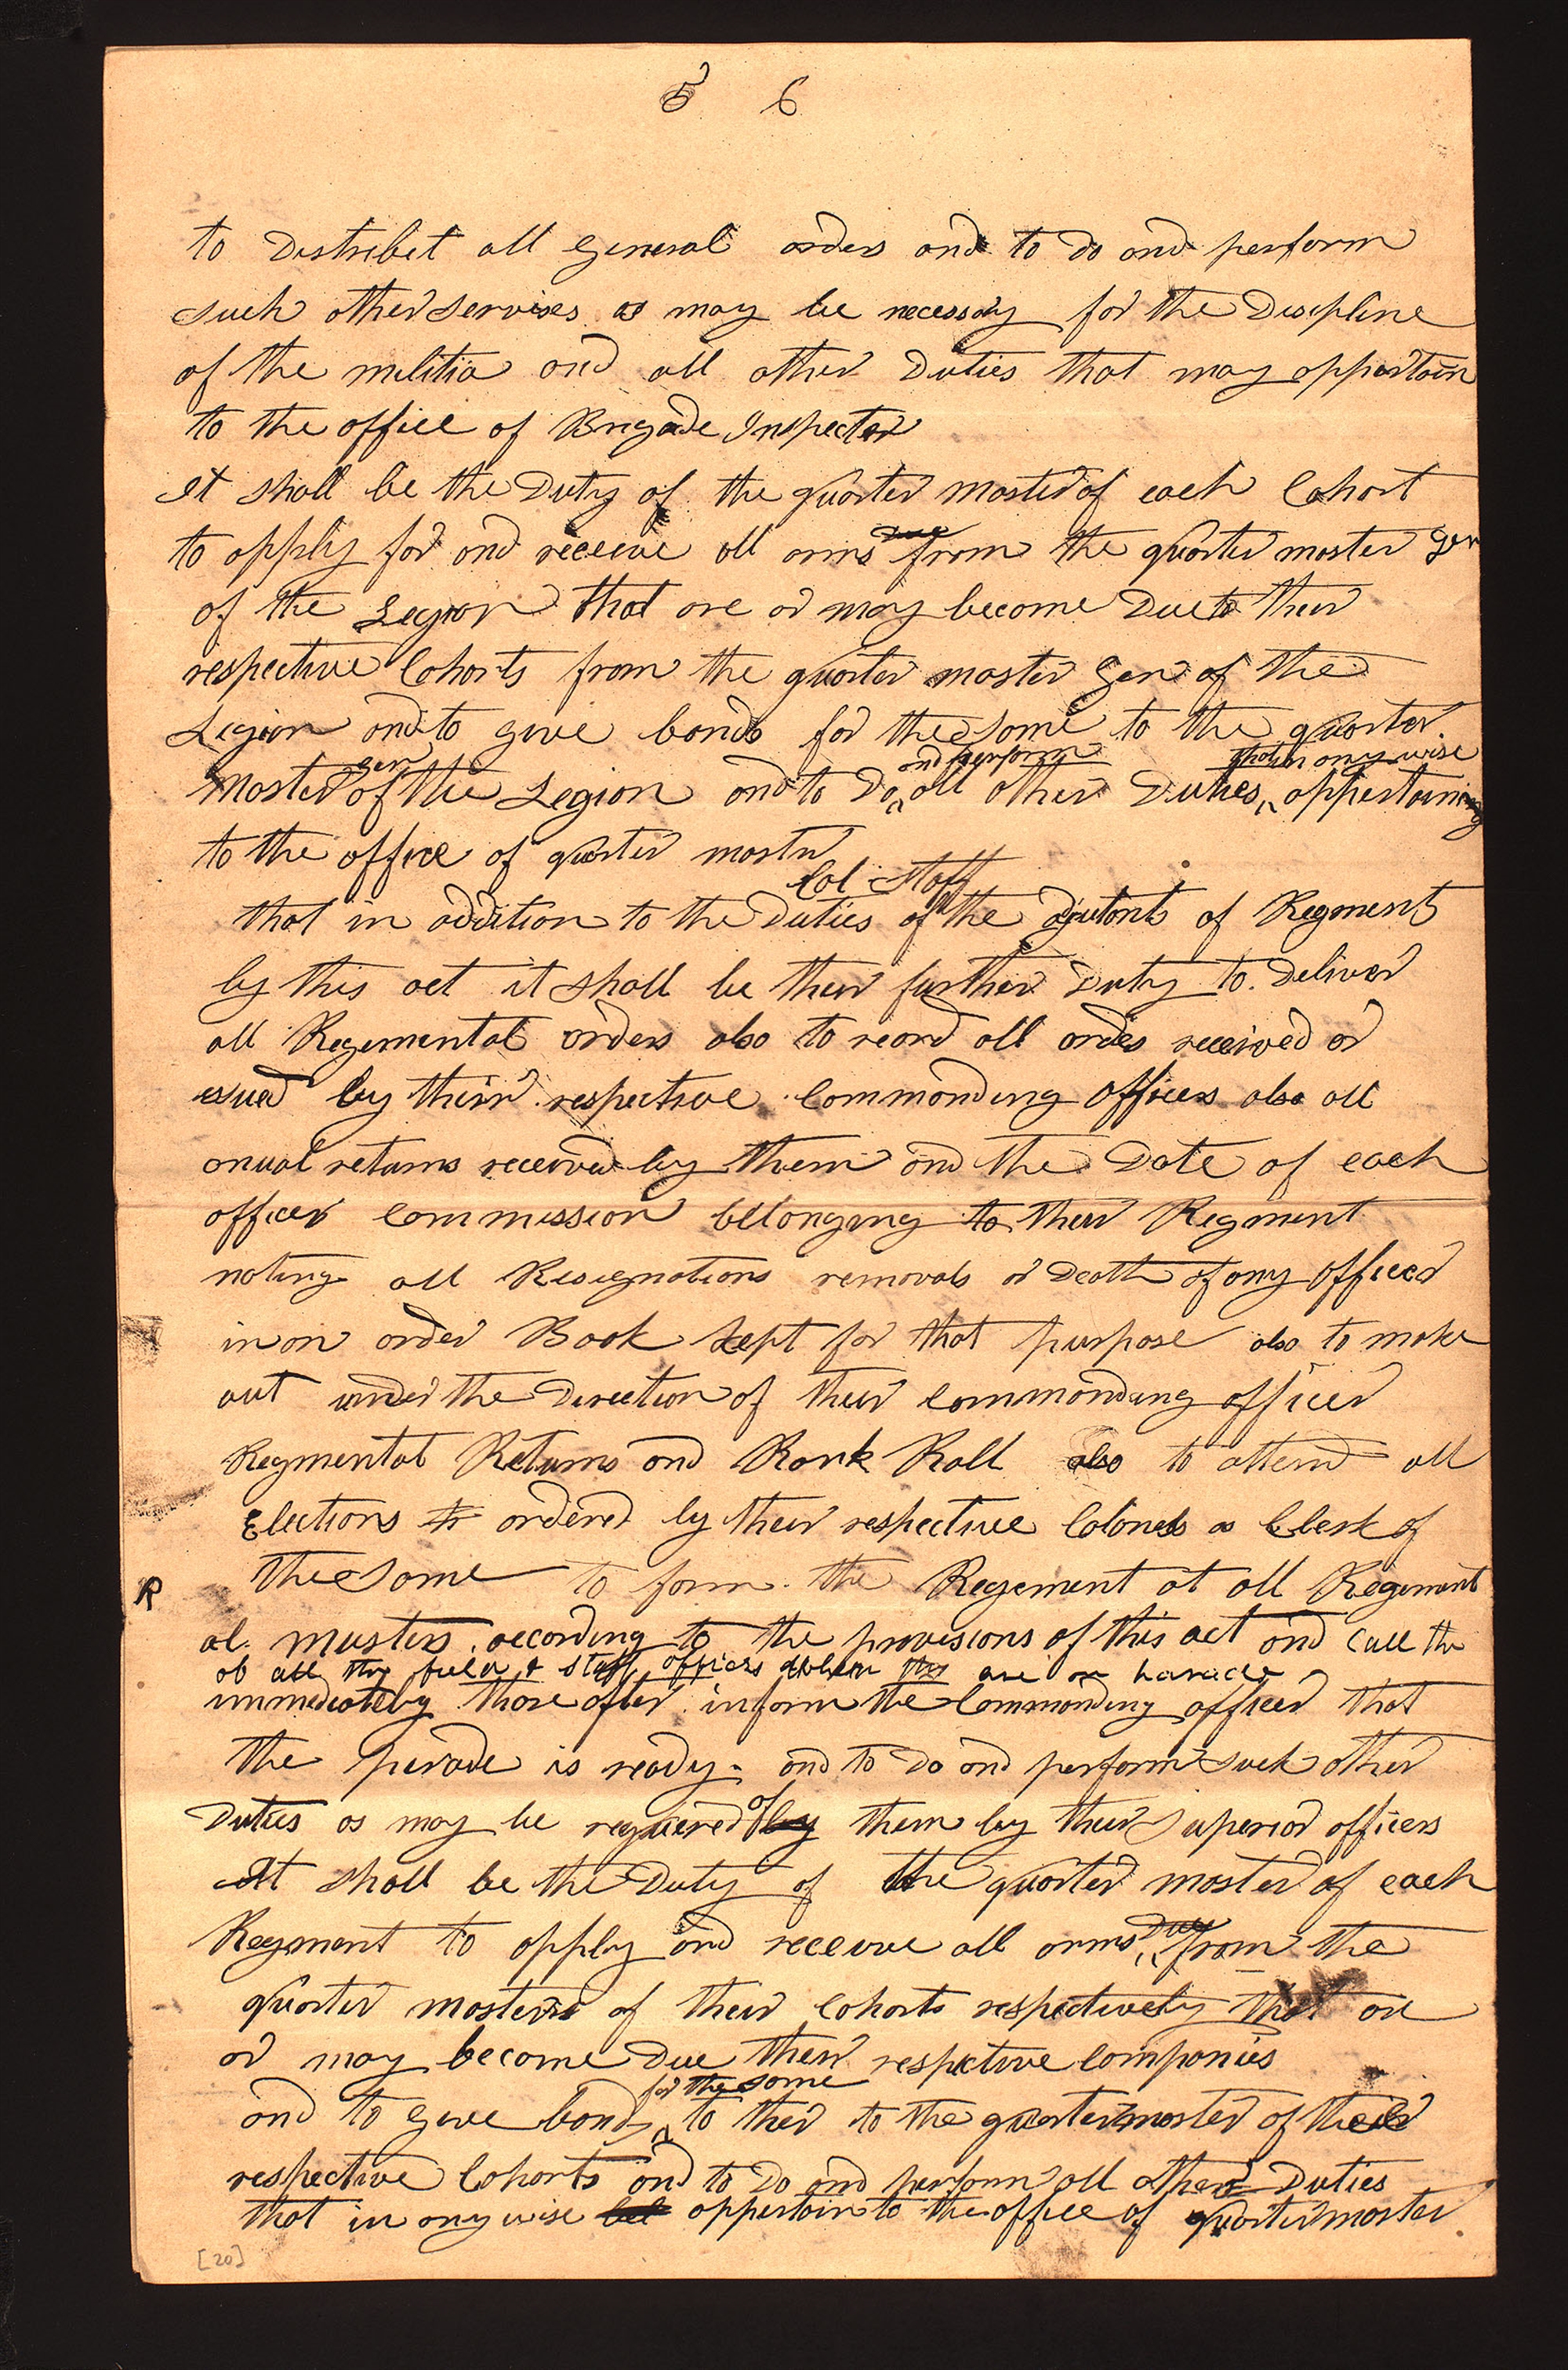 5 6
to Distribet all General orders and to do and perform
such other services as may be necessary for the Discipline
of the militia and all other Duties that may appartain
to the office of Brigade Inspector
it shall be the Duty of the quarter master of each Cohort
Due
to apply for and receive all arms from the quarter master Gen
of the Legion that are or may become Due to their
respective Cohorts from the quarter master Gen of the
Legion and to give bonds for the same to the quarter
gen and perform that in any wise
Master of the Legion and to Do all other Duties appertaining
to the office of quarter master
Col Staff
that in addition to the Duties of the ajutants of Regment
by this act it shall be their further Duty to Deliver
all Regemental orders also to record all orders received or
esued by their respective Commanding officers also all
anual returns received by them and the Date of each
officer Commission belonging to their Regment
noting all Resignations removals or Death of any officer
in an order Book kept for that purpose also to make
out under the Direction of their Commanding officer
Regmental Returns and Rank Roll also to attend all
Elections to ordered by their respective Colonels as Clerk of
the same to form the Regement at all Regement
R
al musters according to the provisions of this act and Call the
all the field & Staff officers when they are on
immediately thare after inform the Commanding officer that
the perade is ready and to do and perform such other
of
Duties as may be requiered by them by their Superior officers
It shall be the Duty of the quarter master of each
Due
Regment to apply and receive all arms from the
quarter masters of their Cohorts respectively that are
or may become Due their respective Companies
for the same
and to give bonds to ther to the quartermaster of their
respective Cohorts and to Do and perform all other Duties
that in any wise bel appertain to the office of quartermaster
[20]